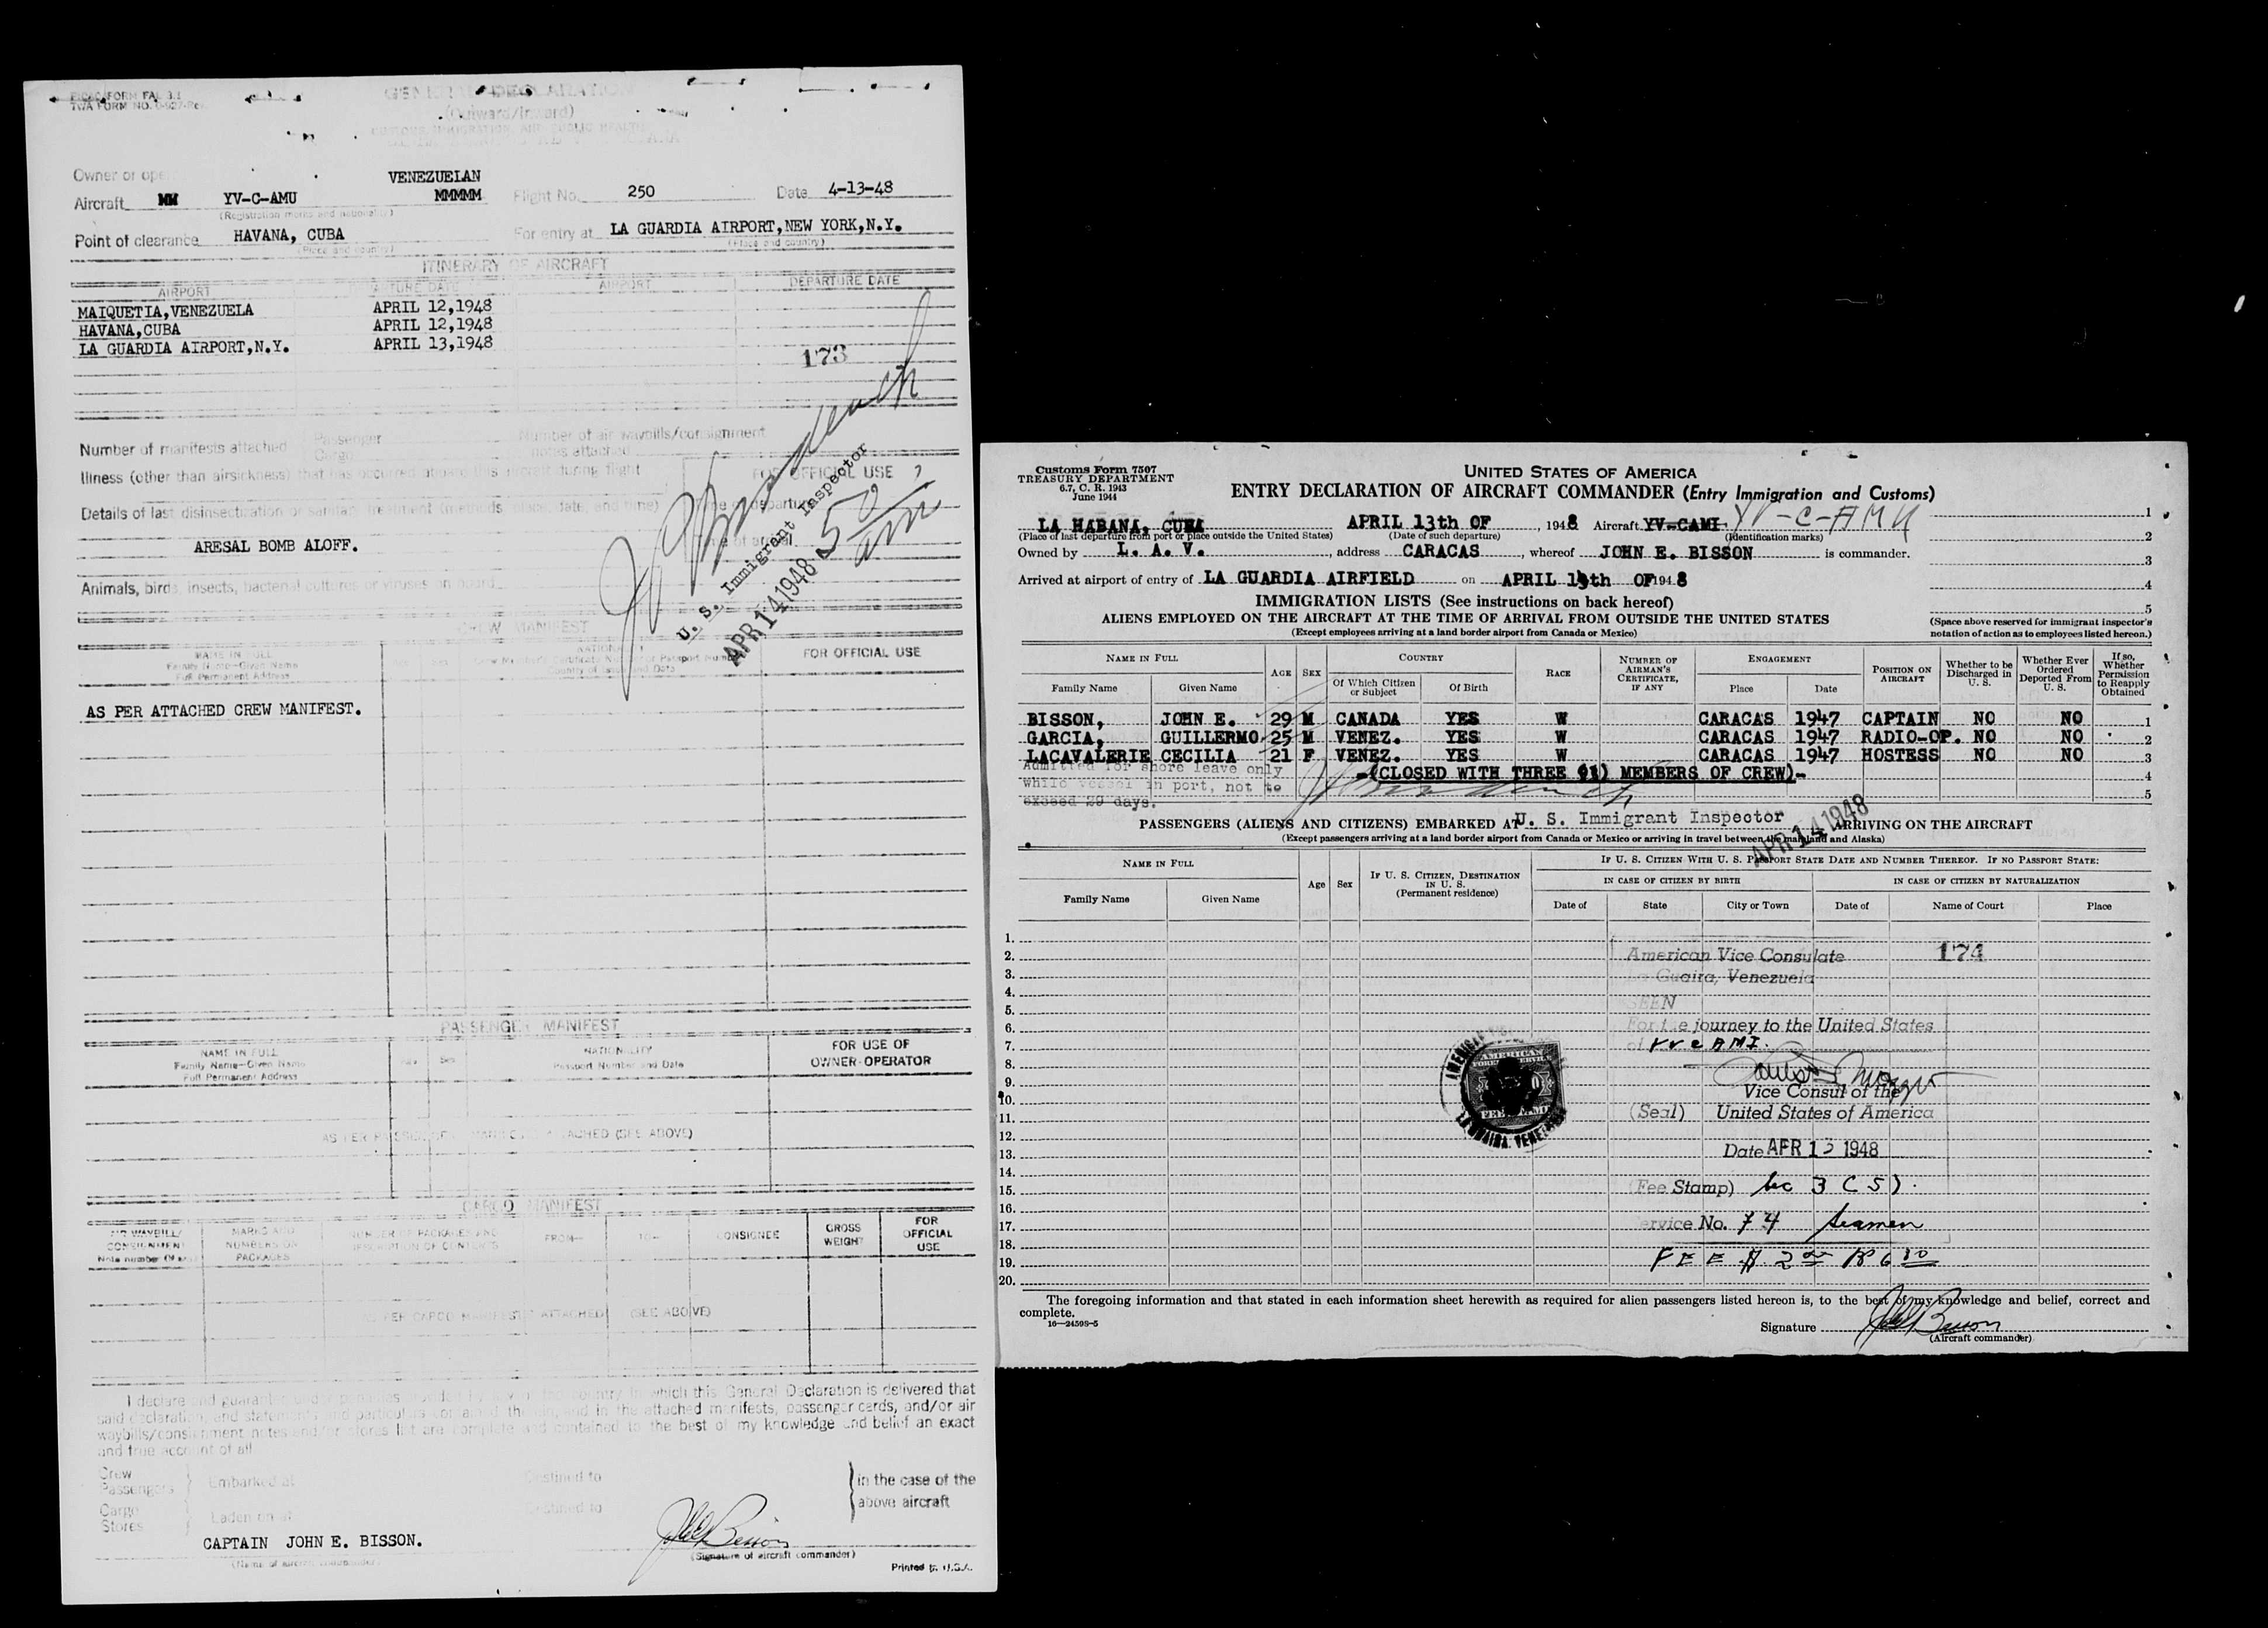 FORM FAL 3.1
TWA FORM NO.
GENERAL DECLARATION
(Outward/Inward)
Owner or ope
VENEZUELAN
Aircraft MM YV-C-AMU MMMMM Flight No. 250 Date 4-13-48
(Registration marks and nationality)
Point of clearance HAVANA, CUBA For entry at LA GUARDIA AIRPORT,NEW YORK,N.Y.
(Place and country) (Place and country)
ITINERARY OF AIRCRAFT
AIRPORT DEPARTURE DATE AIRPORT DEPARTURE DATE
MAIQUETIA,VENEZUELA APRIL 12,1948
HAVANA,CUBA APRIL 12,1948
LA GUARDIA AIRPORT,N.Y. APRIL 13,1948
173
Number of manifests attached Passenger Number of air waybills/consignment
Cargo notes attached
Illness (other than airsickness) that has occurred aboard this aircraft during flight
FOR OFFICIAL USE
Details of last disinsectization or sanitary treatment (methods, place, date, and time)
Time of departure
Time of arrival 5 50 am
ARESAL BOMB ALOFF.
U. S. Immigrant Inspector
APR 14 1948
Animals, birds, insects, bacterial cultures or viruses on board
CREW MANIFEST
NAME IN FULL
Family Name—Given Name
Full Permanent Address
FOR OFFICIAL USE
AS PER ATTACHED CREW MANIFEST.
PASSENGER MANIFEST
NAME IN FULL
Family Name—Given Name
Full Permanent Address
Sex
NATIONALITY
Passport Number and Date
FOR USE OF
OWNER-OPERATOR
AS PER PASSENGER MANIFEST ATTACHED (SEE ABOVE)
CARGO MANIFEST
AIR WAYBILL/
CONSIGNMENT
Note number
MARKS AND
NUMBERS ON
PACKAGES
NUMBER OF PACKAGES AND
DESCRIPTION OF CONTENTS
FROM— TO— CONSIGNEE
GROSS
WEIGHT
FOR
OFFICIAL
USE
PER CARGO MANIFEST ATTACHED (SEE ABOVE)
I declare and guarantee under penalties provided by law of the country in which this General Declaration is delivered that
said declaration, and statements and particulars contained therein, and in the attached manifests, passenger cards, and/or air
waybills/consignment notes and/or stores list are complete and contained to the best of my knowledge and belief an exact
and true account of all
Crew
Passengers } Embarked at Destined to
Cargo
Stores } Laden on at Destined to
} in the case of the
above aircraft
CAPTAIN JOHN E. BISSON.
(Name of aircraft commander)
John E Bisson
(Signature of aircraft commander)
Printed in U.S.A.
Customs Form 7507
TREASURY DEPARTMENT
6.7, C. R. 1943
June 1944
UNITED STATES OF AMERICA
ENTRY DECLARATION OF AIRCRAFT COMMANDER (Entry Immigration and Customs)
LA HABANA, CUBA APRIL 13th OF , 1948 Aircraft YV-CAMI YV-C-AMU
(Place of last departure from port or place outside the United States) (Date of such departure) (Identification marks)
Owned by L. A. V. , address CARACAS , whereof JOHN E. BISSON is commander.
Arrived at airport of entry of LA GUARDIA AIRFIELD on APRIL 13th OF 1948
1
2
3
4
5
IMMIGRATION LISTS (See instructions on back hereof)
ALIENS EMPLOYED ON THE AIRCRAFT AT THE TIME OF ARRIVAL FROM OUTSIDE THE UNITED STATES
(Except employees arriving at a land border airport from Canada or Mexico)
(Space above reserved for immigrant inspector's
notation of action as to employees listed hereon.)
NAME IN FULL AGE SEX COUNTRY RACE NUMBER OF AIRMAN'S CERTIFICATE, IF ANY ENGAGEMENT POSITION ON AIRCRAFT Whether to be Discharged in U. S. Whether Ever Ordered Deported From U. S. If so, Whether Permission to Reapply Obtained
Family Name Given Name Of Which Citizen or Subject Of Birth Place Date
BISSON, JOHN E. 29 M CANADA YES W CARACAS 1947 CAPTAIN NO NO 1
GARCIA, GUILLERMO 25 M VENEZ. YES W CARACAS 1947 RADIO-OP. NO NO 2
LACAVALERIE CECILIA 21 F VENEZ. YES W CARACAS 1947 HOSTESS NO NO 3
-(CLOSED WITH THREE (3) MEMBERS OF CREW)- 4
5
Admitted for shore leave only
while vessel in port, not to
exceed 29 days.
U. S. Immigrant Inspector
APR 14 1948
PASSENGERS (ALIENS AND CITIZENS) EMBARKED AT ARRIVING ON THE AIRCRAFT
(Except passengers arriving at a land border airport from Canada or Mexico or arriving in travel between the mainland and Alaska)
NAME IN FULL Age Sex IF U. S. CITIZEN, DESTINATION IN U. S. (Permanent residence) IF U. S. CITIZEN WITH U. S. PASSPORT STATE DATE AND NUMBER THEREOF. IF NO PASSPORT STATE:
IN CASE OF CITIZEN BY BIRTH IN CASE OF CITIZEN BY NATURALIZATION
Family Name Given Name Date of State City or Town Date of Name of Court Place
1.
2.
3.
4.
5.
6.
7.
8.
9.
10.
11.
12.
13.
14.
15.
16.
17.
18.
19.
20.
174
American Vice Consulate
La Guaira, Venezuela
SEEN
For the journey to the United States
of YV C AMI.
Vice Consul of the
(Seal) United States of America
Date APR 13 1948
(Fee Stamp) Sec 3 (5).
Service No. 74 Seamen
FEE $ 2
AMERICAN
FEE STAMP
LA GUAIRA, VENEZUELA
The foregoing information and that stated in each information sheet herewith as required for alien passengers listed hereon is, to the best of my knowledge and belief, correct and
complete.
16—24598-5
Signature John E Bisson
(Aircraft commander)